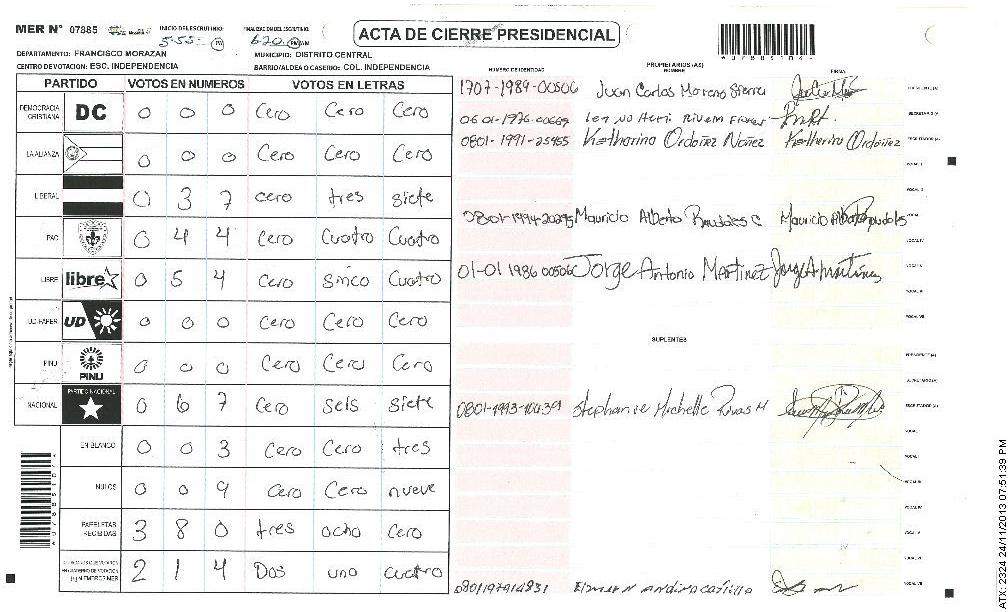 MER Nº 07885 INICIO DEL ESCRUTINIO 5:55 PM FINALIZACIÓN DEL ESCRUTINIO 6:20 PM ACTA DE CIERRE PRESIDENCIAL
DEPARTAMENTO: FRANCISCO MORAZAN MUNICIPIO: DISTRITO CENTRAL
CENTRO DE VOTACION: ESC. INDEPENDENCIA BARRIO/ALDEA O CASERIO: COL. INDEPENDENCIA
PARTIDO VOTOS EN NUMEROS VOTOS EN LETRAS
NUMERO DE IDENTIDAD PROPIETARIOS (AS) NOMBRE FIRMA
DEMOCRACIA CRISTIANA DC 0 0 0 Cero Cero Cero
LA ALIANZA 0 0 0 Cero Cero Cero
LIBERAL 0 3 7 cero tres siete
PAC 0 4 4 Cero Cuatro Cuatro
LIBRE libre 0 5 4 Cero sinco Cuatro
UD-FAPER UD 0 0 0 Cero Cero Cero
PINU PINU 0 0 0 Cero Cero Cero
NACIONAL PARTIDO NACIONAL 0 6 7 Cero seis siete
EN BLANCO 0 0 3 Cero Cero tres
NULOS 0 0 9 Cero Cero nueve
PAPELETAS RECIBIDAS 3 8 0 tres ocho Cero
2 1 4 Dos uno cuatro
1707-1989-00506 Juan Carlos Moreno Sierra PRESIDENTE (A)
0601-1976-00669 SECRETARIO (A)
0801-1991-25455 Katherine Ordoñez Núñez Katherine Ordoñez ESCRUTADOR (A)
VOCAL I
VOCAL II
0801-1994-20295 Mauricio Alberto
VOCAL IV
01-01 1986 00506 Jorge Antonio Martinez Jorge A Martinez VOCAL V
VOCAL VI
VOCAL VII
SUPLENTES
PRESIDENTE (A)
SECRETARIO (A)
0801-1993-10439 Stephanie Michelle Rivas M ESCRUTADOR (A)
VOCAL I
VOCAL III
VOCAL IV
VOCAL V
VOCAL VI
0801197914831 VOCAL VII
ATX: 2324 24/11/2013 07:51:39 PM